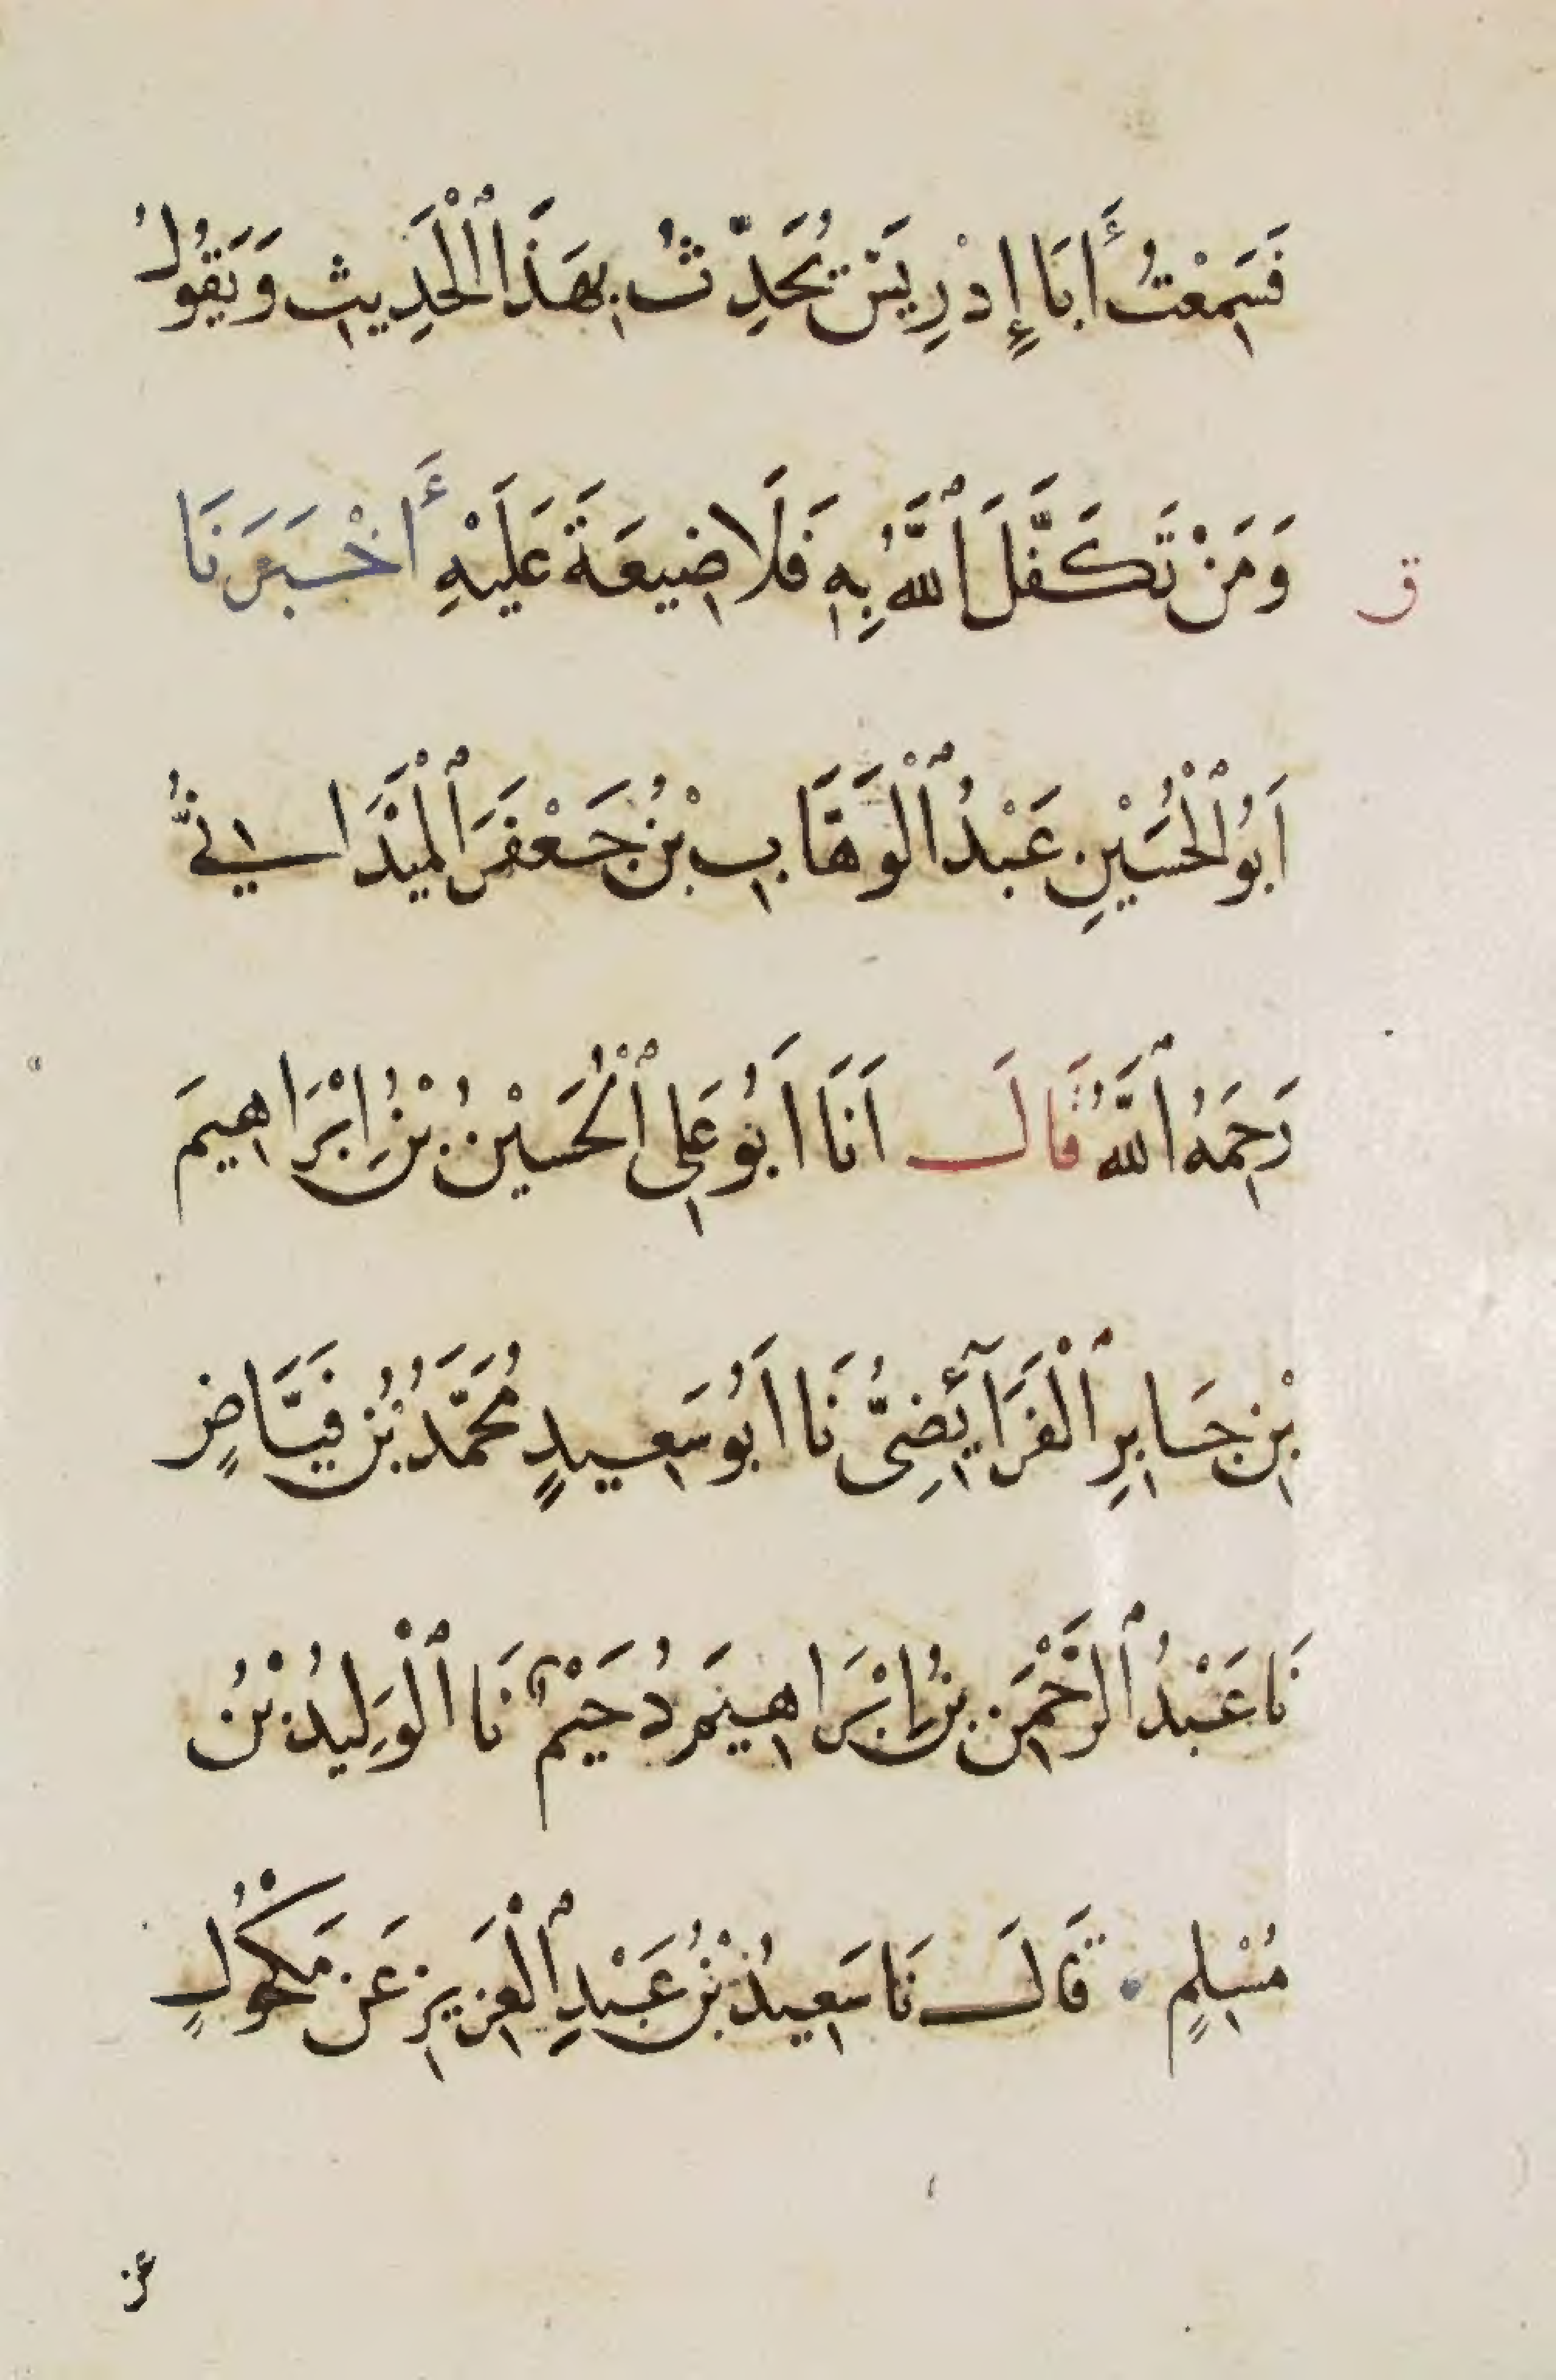 فَسَمِعْتُ أَبَا إِدْرِيسَ يُحَدِّثُ بِهَذَا ٱلْحَدِيثِ وَيَقُولُ
ق
وَمَنْ تَكَفَّلَ ٱللَّهُ بِهِ فَلَا ضِيعَةَ عَلَيْهِ أَخْبَرَنَا
اَبُو ٱلْحُسَيْنِ عَبْدُ ٱلْوَهَّابِ بْنُ جَعْفَرَ ٱلْمَيْدَانِيُّ
رَحِمَهُ ٱللَّهُ قَالَ اَنَا اَبُو عَلِي ٱلْحُسَيْنُ بْنُ اِبْرَاهِيمَ
بْنِ جَابِرِ ٱلْفَرَآئِضِىُّ نَا اَبُو سَعِيدٍ مُحَمَّدُ بْنُ فَيَّاضٍ
نَا عَبْدُ ٱلرَّحْمَنِ بْنُ اِبْرَاهِيمَ دُحَيْم نَا ٱلْوَلِيدُ بْنُ
مُسْلِمٍ قَالَ نَا سَعِيدُ بْنُ عَبْدِ ٱلْعَزِيزِ عَنْ مَكْحُولٍ
عن